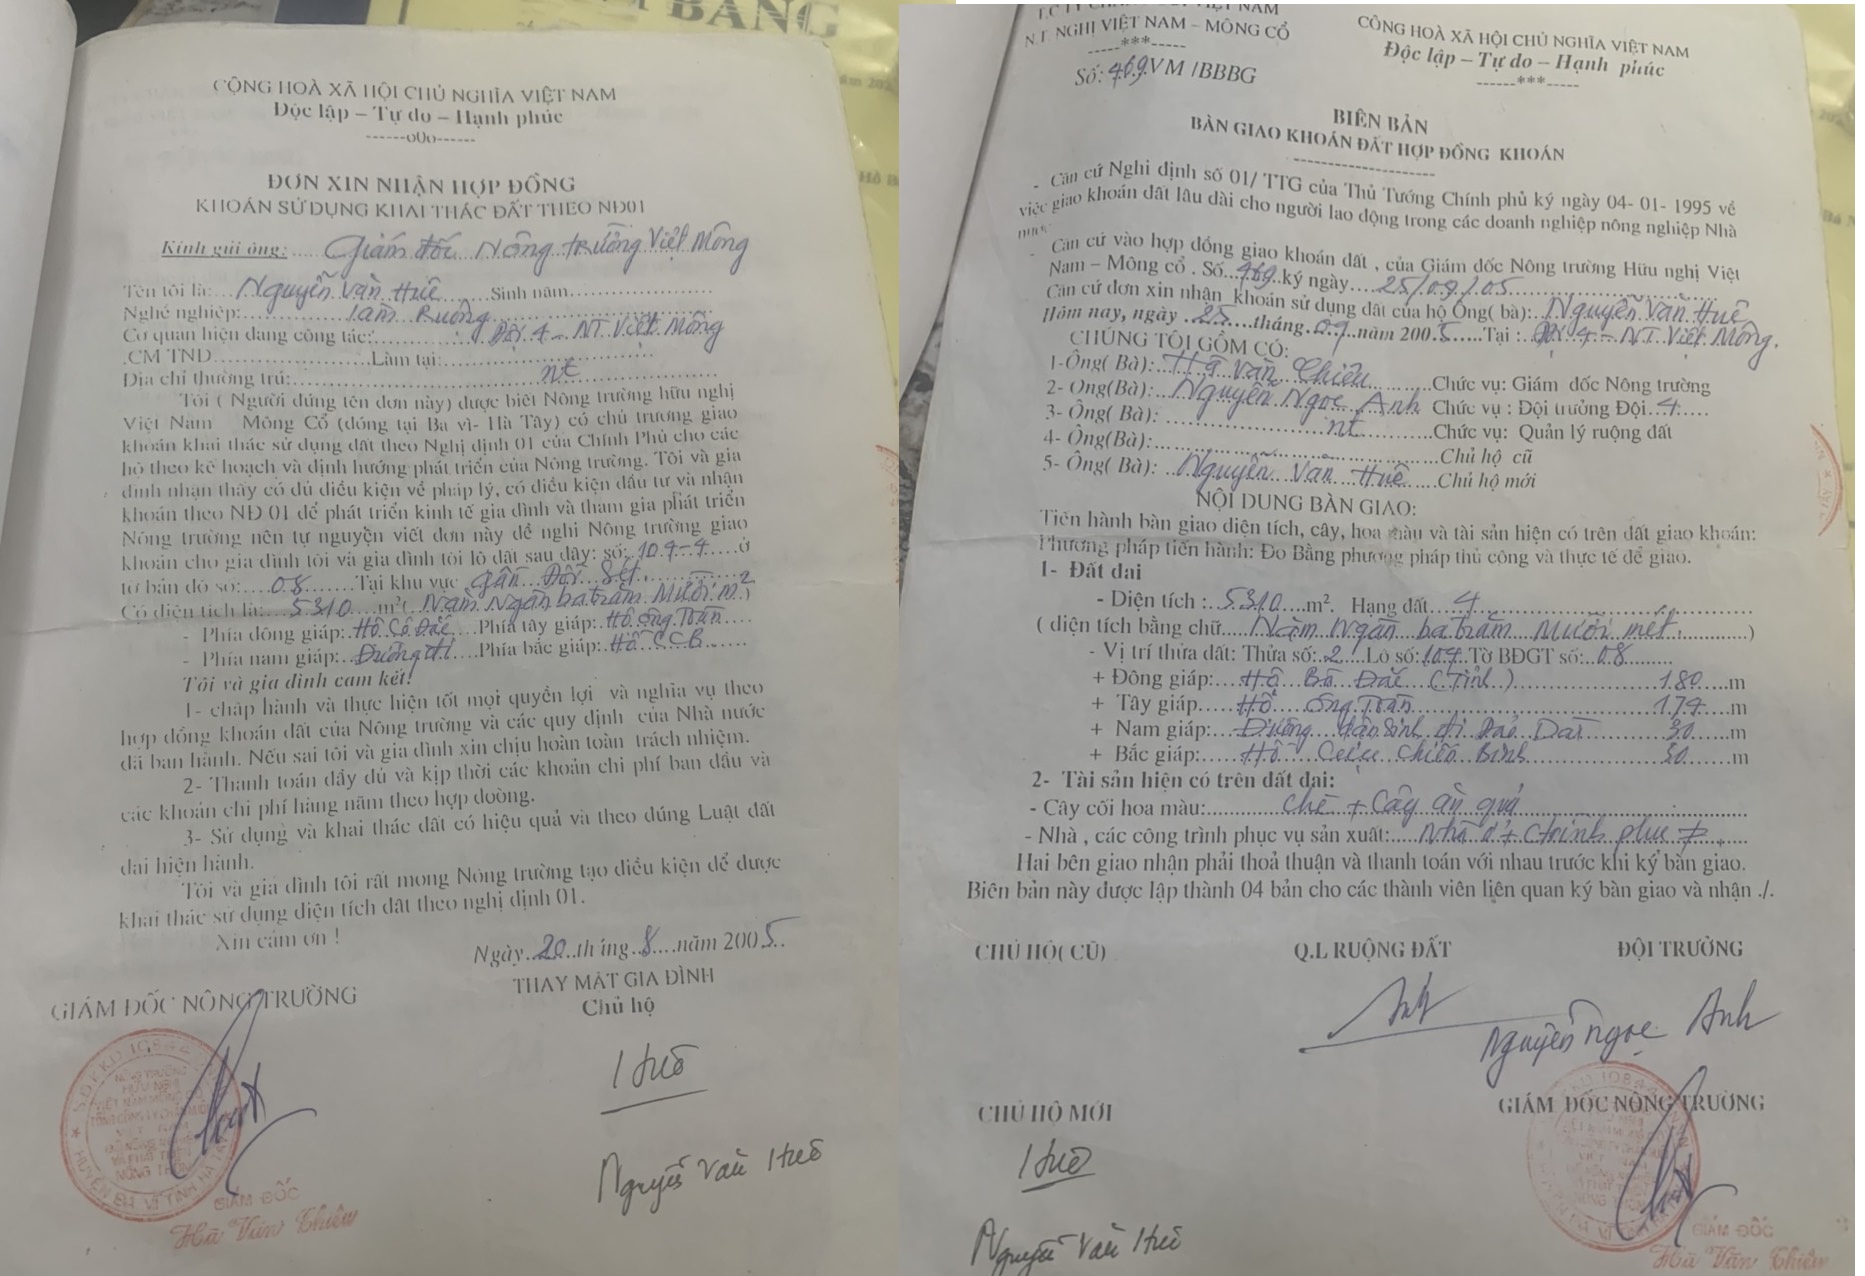 BẰNG
CỘNG HOÀ XÃ HỘI CHỦ NGHĨA VIỆT NAM
Độc lập – Tự do – Hạnh phúc
------o0o------
ĐƠN XIN NHẬN HỢP ĐỒNG
KHOÁN SỬ DỤNG KHAI THÁC ĐẤT THEO NĐ01
Kính gửi ông: Giám đốc Nông trường Việt Mông
Tên tôi là: Nguyễn Văn Huê Sinh năm
Nghề nghiệp: Làm Ruộng
Cơ quan hiện đang công tác: Đội 4 - NT Việt Mông
CM TND Làm tại:
Địa chỉ thường trú: nt
Tôi ( Người đứng tên đơn này) được biết Nông trường hữu nghị
Việt Nam Mông Cổ (đóng tại Ba vì- Hà Tây) có chủ trương giao
khoán khai thác sử dụng đất theo Nghị định 01 của Chính Phủ cho các
hộ theo kế hoạch và định hướng phát triển của Nông trường. Tôi và gia
đình nhận thấy có đủ điều kiện về pháp lý, có điều kiện đầu tư và nhận
khoán theo NĐ 01 để phát triển kinh tế gia đình và tham gia phát triển
Nông trường nên tự nguyện viết đơn này đề nghị Nông trường giao
khoán cho gia đình tôi và gia đình tôi lô đất sau đây: số: 104-4 ở
tờ bản đồ số: 08 Tại khu vực gần Đồi Sét
Có diện tích là: 5310 m²( Năm Ngàn ba trăm Mười m²)
- Phía đông giáp: Hộ Cô Đắc Phía tây giáp: Hồ ông Toàn
- Phía nam giáp: Đường đi Phía bắc giáp: Hồ CCB
Tôi và gia đình cam kết!
1- chấp hành và thực hiện tốt mọi quyền lợi và nghĩa vụ theo
hợp đồng khoán đất của Nông trường và các quy định của Nhà nước
đã ban hành. Nếu sai tôi và gia đình xin chịu hoàn toàn trách nhiệm.
2- Thanh toán đầy đủ và kịp thời các khoản chi phí ban đầu và
các khoản chi phí hàng năm theo hợp doòng.
3- Sử dụng và khai thác đất có hiệu quả và theo đúng Luật đất
đai hiện hành.
Tôi và gia đình tôi rất mong Nông trường tạo điều kiện để được
khai thác sử dụng diện tích đất theo nghị định 01.
Xin cảm ơn !
Ngày 20 tháng 8 năm 2005
THAY MẶT GIA ĐÌNH
GIÁM ĐỐC NÔNG TRƯỜNG
Chủ hộ
Huê
Nguyễn Văn Huê
GIÁM ĐỐC
Hà Văn Chiêu
N.T NGHỊ VIỆT NAM – MÔNG CỔ
-----***-----
Số: 469 VM /BBBG
CÔNG HOÀ XÃ HỘI CHỦ NGHĨA VIỆT NAM
Độc lập – Tự do – Hạnh phúc
------***-----
BIÊN BẢN
BÀN GIAO KHOÁN ĐẤT HỢP ĐỒNG KHOÁN
- Căn cứ Nghi định số 01/ TTG của Thủ Tướng Chính phủ ký ngày 04- 01- 1995 về
việc giao khoán đất lâu dài cho người lao động trong các doanh nghiệp nông nghiệp Nhà
nước
Căn cứ vào hợp đồng giao khoán đất , của Giám đốc Nông trường Hữu nghị Việt
Nam – Mông cổ . Số 469 ký ngày 25/09/05
Căn cứ đơn xin nhận khoán sử dụng đất của hộ Ông( bà): Nguyễn Văn Huê
Hôm nay, ngày 25 tháng 09 năm 2005 Tại : Đội 4 - NT Việt Mông.
CHÚNG TÔI GỒM CÓ:
1-Ông( Bà): Hà Văn Chiêu Chức vụ: Giám đốc Nông trường
2- Ông(Bà): Nguyễn Ngọc Anh Chức vụ : Đội trưởng Đội 4
3- Ông( Bà): nt Chức vụ: Quản lý ruộng đất
4- Ông(Bà): Chủ hộ cũ
5- Ông( Bà): Nguyễn Văn Huê Chủ hộ mới
NỘI DUNG BÀN GIAO:
Tiến hành bàn giao diện tích, cây, hoa màu và tài sản hiện có trên đất giao khoán:
Phương pháp tiến hành: Đo Bằng phương pháp thủ công và thực tế để giao.
1- Đất đai
- Diện tích : 5310 m². Hạng đất 4
( diện tích bằng chữ Năm Ngàn ba trăm Mười mét )
- Vị trí thửa đất: Thửa số: 2 Lô số: 104 Tờ BĐGT số: 08
+ Đông giáp: Hộ Bà Đắc (Tỉnh) 180 m
+ Tây giáp Hồ ông Toàn 174 m
+ Nam giáp: Đường dân sinh đi Đảo Dài 30 m
+ Bắc giáp: Hồ Cựu Chiến Binh 30 m
2- Tài sản hiện có trên đất đai:
- Cây cối hoa màu: chè + Cây ăn quả
- Nhà , các công trình phục vụ sản xuất: Nhà ở + ctrình phụ
Hai bên giao nhận phải thoả thuận và thanh toán với nhau trước khi ký bàn giao.
Biên bản này được lập thành 04 bản cho các thành viên liên quan ký bàn giao và nhận ./.
CHỦ HỘ( CŨ) Q.L RUỘNG ĐẤT ĐỘI TRƯỞNG
Anh
Nguyễn Ngọc Anh
CHỦ HỘ MỚI GIÁM ĐỐC NÔNG TRƯỜNG
Huê
Nguyễn Văn Huê
GIÁM ĐỐC
Hà Văn Chiêu